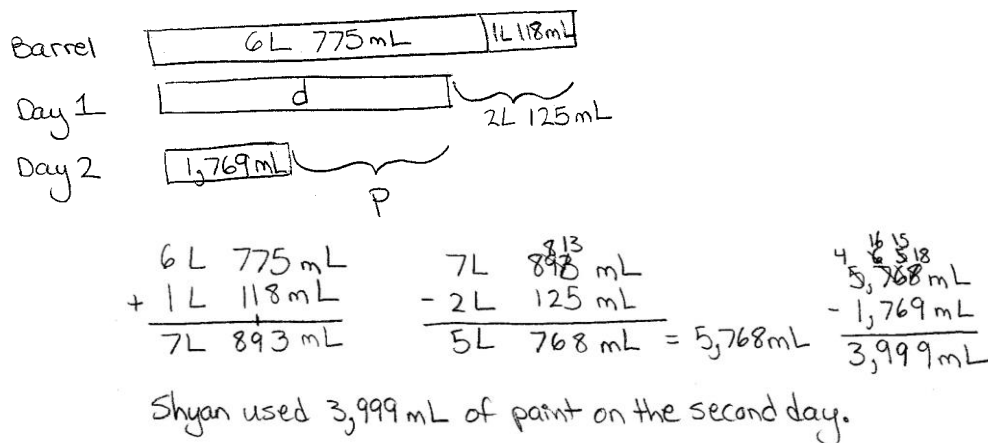 Barrel 6L 775mL 1L 118mL
Day 1 d
2L 125mL
Day 2 1,769mL
P
6L 775mL
+ 1L 118mL
7L 893mL
8 13
7L 893 mL
- 2L 125 mL
5L 768 mL = 5,768mL
16 15
4 6 5 18
5,768mL
- 1,769mL
3,999mL
Shyan used 3,999mL of paint on the second day.